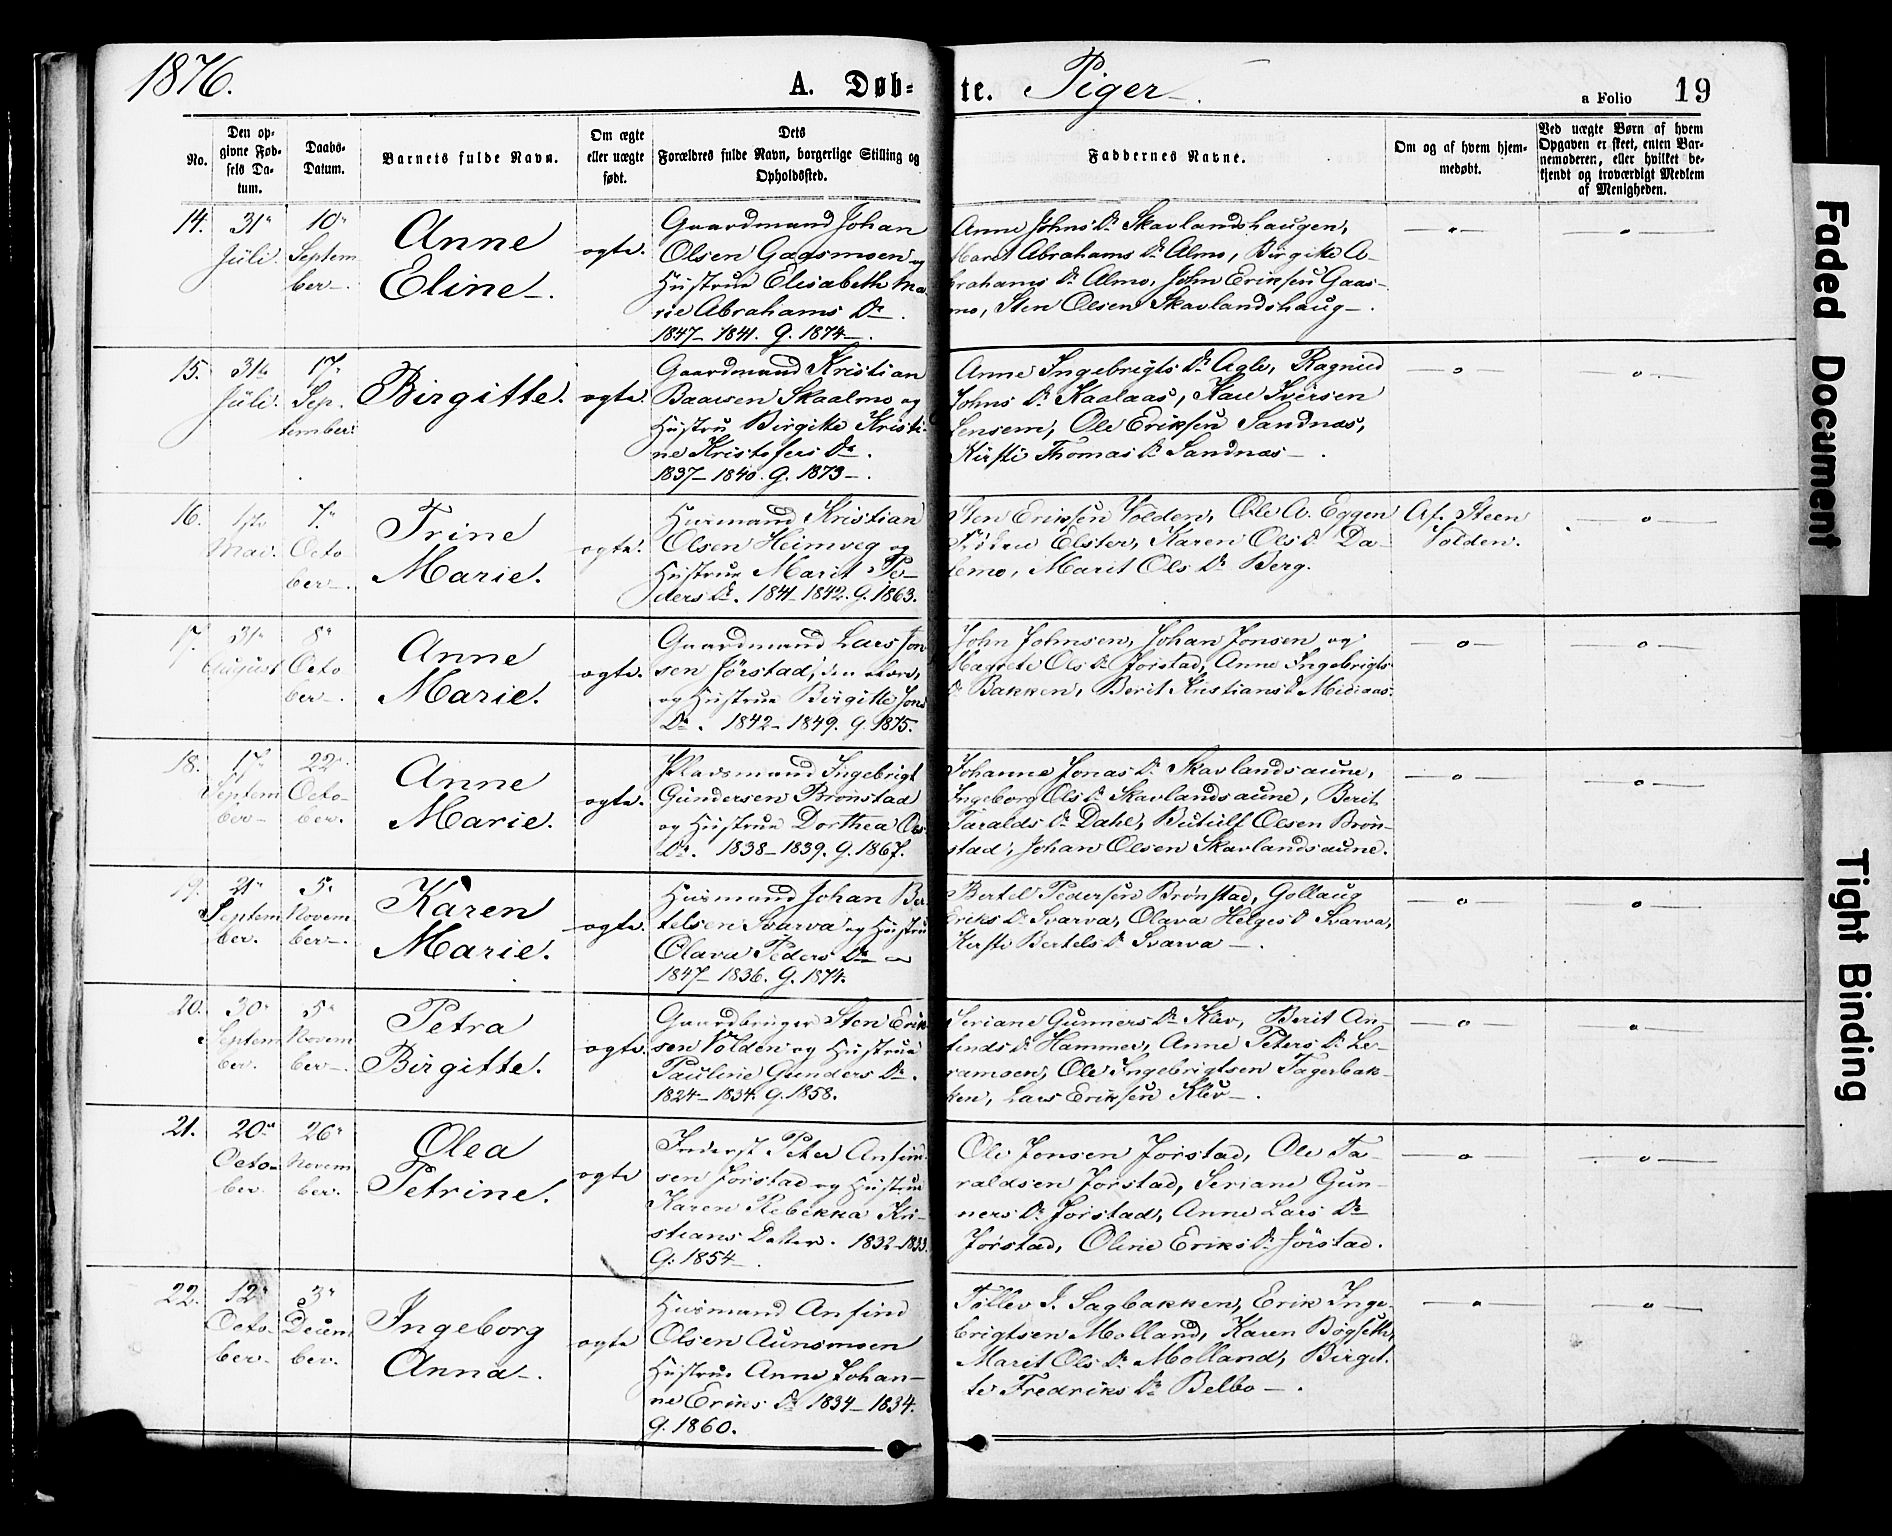 1876.
A. Døb=
te. Piger
a Folio 19
No.
Den op-
givne Fød-
sels Da-
tum.
Daabs-
Datum.
Barnets fulde Navn.
Om ægte
eller uægte
født.
Dets
Forældres fulde Navn, borgerlige Stilling og
Opholdssted.
Faddernes Navne.
Om og af hvem hjem-
medøbt.
Ved uægte Børn af hvem
Opgaven er skeet, enten Bar-
nemoderen, eller hvilket be-
kjendt og troværdigt Medlem
af Menigheden.
14.
31
Juli.
10
Septem
ber
Anne
Eline
ægte.
Gaardmand Johan
Olsen Gaasmoen og
Hustrue Elisabeth Ma
rie Abrahams Dr.
1847 - 1841. G. 1874
Anne Johns Dr. Skavlandshaugen,
Maret Abrahams Dr. Almo, Birgitte A-
brahams Dr. Almo, John Eriksen Gaas-
mo, Sten Olsen Skavlandshaug
15.
31
Juli.
17
Sep-
tember
Birgitte.
ægte.
Gaardmand Kristian
Baarsen Skaalmo og
Hustru Birgitte Kristi-
ne Kristofers Dr.
1837 - 1840. G. 1873
Anne Ingebrigts Dr. Agle, Ragnild
Johns Dr. Kaalaas, Iversen
Lensem, Ole Eriksen Sandnæs,
Kirsti Thomas Dr. Sandnæs
16.
17
Mai.
7
Octo
ber
Trine
Marie.
ægte.
Husmand Kristian
Olsen Heimveg og
Hustrue Marit Pe-
ders Dr. 1841 - 1842. G. 1863.
Sten Eriksen Volden, Ole A. Eggen
Elster, Karen Ols Dr. Da-
lemo, Marit Ols Dr. Berg.
Af. Steen
Volden.
17.
31
August
8
Octo
ber
Anne
Marie.
ægte.
Gaardmand Lars Jon
sen Jørstad,
og Hustrue Birgitte Jons
Dr. 1842 - 1849. G. 1875.
John Johnsen, Johan Jonsen og
Magrete Ols Dr. Jørstad, Anne Ingebrigts
Dr. Bakken, Berit Kristians Dr.
18.
17
Septem
ber
22
Octo-
ber.
Anne
Marie.
ægte.
Pladsmand Ingebrigt
Gundersen Brønstad
og Hustrue Dorthea Ols
Dr. 1838 - 1839. G. 1867.
Johanna Jonas Dr. Skavlandsaune,
Ingeborg Ols Dr. Skavlandsaune, Berit
Taralds Dr. Dahl, Olsen Brøn-
stad, Johan Olsen Skavlandsaune.
19.
21
Septem
ber.
5
Novem
ber
Karen
Marie.
ægte.
Husmand Johan Ber
telsen Svarva og Hustru
Olava Peders Dr.
1847 - 1836. G. 1874.
Bertel Pedersen Brønstad, Gollaug
Eriks Dr. Svarva, Olava Helges Dr. Svarva,
Kirsti Bertels Dr. Svarva
20.
30
Septem
ber.
5
Novem
ber
Petra
Birgitte.
ægte.
Gaardbruger Sten Erik
sen Volden og Hustrue
Pauline Gunders Dr.
1824 - 1834. G. 1858.
Seriane Gunners Dr. Klev, Berit An-
finds Dr. Hammer, Anne Peters Dr. Le-
ramoen, Ole Ingebrigtsen Fagerbak-
ken, Lars Eriksen Klev
21.
20
Octo-
ber.
26
Novem
ber.
Olea
Petrine.
ægte
Inderst Peter Anfind
sen Jørstad og Hustrue
Karen Rebekka Kri-
stians Datter. 1832 - 1833.
G. 1854
Ole Jonsen Jørstad, Ole Ta-
raldsen Jørstad, Seriane Gun-
ners Dr. Jørstad, Anne Lars Dr.
Jørstad, Oline Eriks Dr. Jørstad.
22.
12
Octo-
ber.
3
Decem
ber.
Ingeborg
Anna
ægte
Husmand Anfind
Olsen Aunsmoen
Hustrue Anne Johan-
ne Eriks Dr. 1834 - 1834.
G. 1860.
Tollev J. Sagbakken, Erik Inge-
brigtsen Molland, Karen Bøgseth,
Marit Ols Dr. Molland, Birgit-
te Fredriks Dr. Belbo
Faded Document
Tight Binding